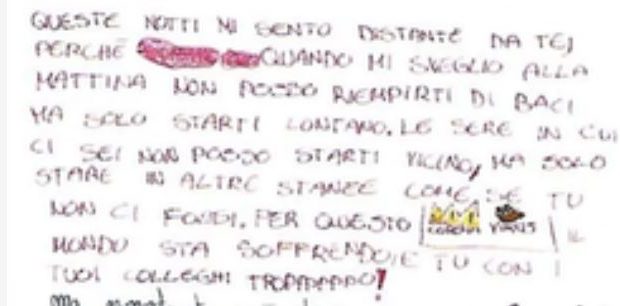 QUESTE NOTTI MI SENTO DISTANTE DA TE,
PERCHÉ QUANDO MI SVEGLIO ALLA
MATTINA NON POSSO RIEMPIRTI DI BACI
MA SOLO STARTI LONTANO. LE SERE IN CUI
CI SEI NON POSSO STARTI VICINO, MA SOLO
STARE IN ALTRE STANZE COME SE TU
NON CI FOSSI. PER QUESTO CORONA VIRUS IL
MONDO STA SOFFRENDO, E TU CON I
TUOI COLLEGHI TROPPPPPPO!